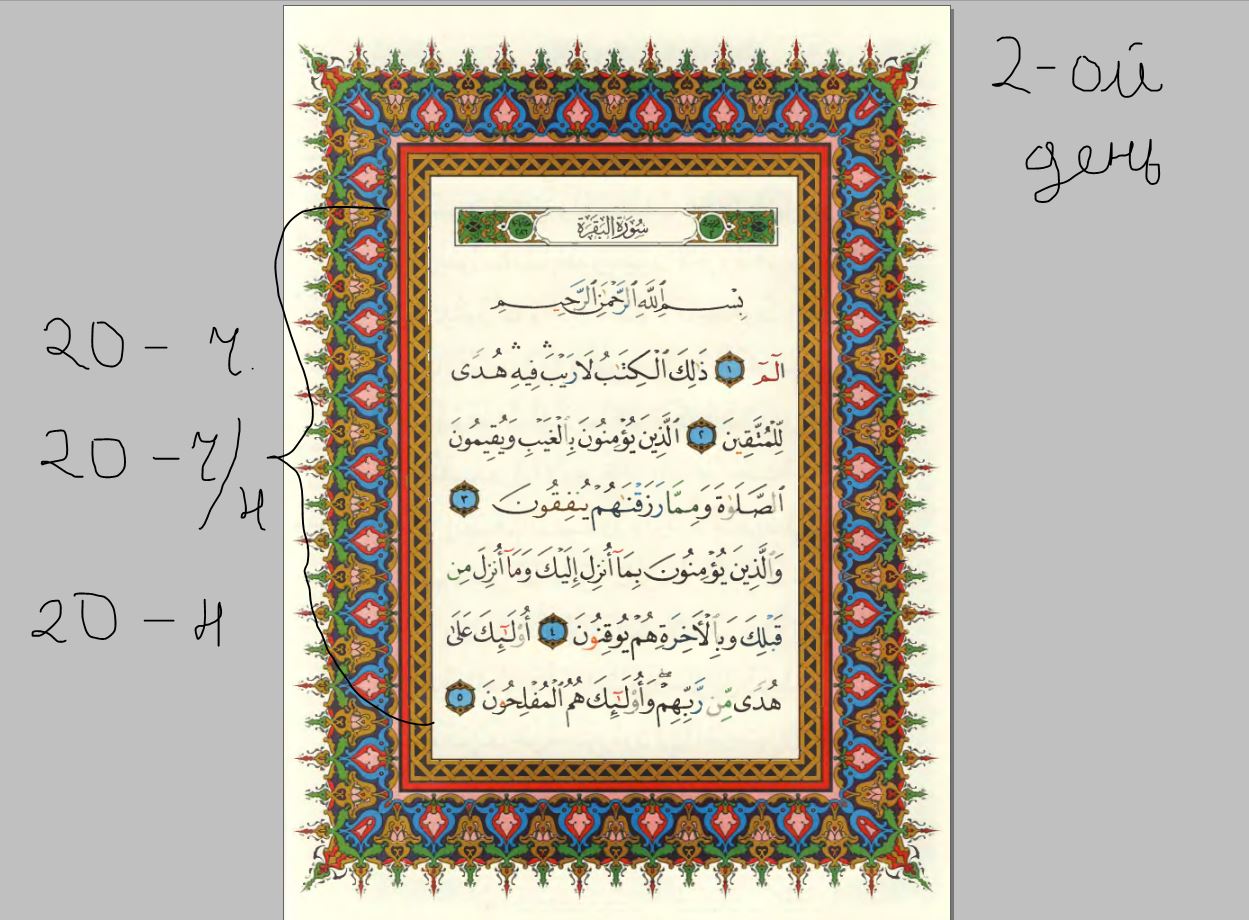 2-ой
день
20 - ч.
20 - ч/н
20 - н
سُورَةُ الْبَقَرَةِ
بِسْمِ ٱللَّهِ ٱلرَّحْمَٰنِ ٱلرَّحِيمِ
الٓمٓ ١ ذَٰلِكَ ٱلْكِتَٰبُ لَا رَيْبَ ۛ فِيهِ ۛ هُدًى
لِّلْمُتَّقِينَ ٢ ٱلَّذِينَ يُؤْمِنُونَ بِٱلْغَيْبِ وَيُقِيمُونَ
ٱلصَّلَوٰةَ وَمِمَّا رَزَقْنَٰهُمْ يُنفِقُونَ ٣
وَٱلَّذِينَ يُؤْمِنُونَ بِمَآ أُنزِلَ إِلَيْكَ وَمَآ أُنزِلَ مِن
قَبْلِكَ وَبِٱلْأَخِرَةِ هُمْ يُوقِنُونَ ٤ أُو۟لَٰٓئِكَ عَلَىٰ
هُدًى مِّن رَّبِّهِمْ ۖ وَأُو۟لَٰٓئِكَ هُمُ ٱلْمُفْلِحُونَ ٥